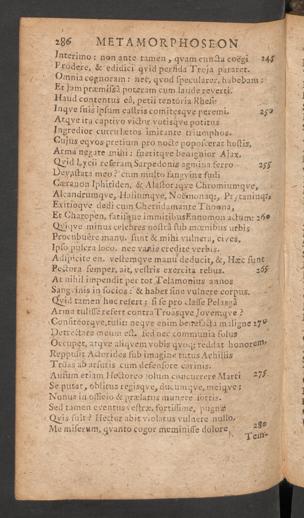 286 METAMORPHOSEON
Interimo: non ante tamen, qvam cuncta coëgi 245
Prodere, & edidici qvid perfida Troja pararet.
Omnia cognoram: nec, qvod specularer, habebam:
Et jam præmissâ poteram cum laude reverti.
Haud contentus eâ, petii tentoria Rhesi:
Inqve suis ipsum castris comitesqve peremi. 250
Atqve ita captivo victor votisqve potitus
Ingredior curru lætos imitante triumphos.
Cujus eqvos pretium pro nocte poposcerat hostis,
Arma negate mihi: fueritqve benignior Ajax.
Qvid Lycii referam Sarpedonis agmina ferro 255
Devastata meo? cum multo sangvine fudi
Cœranon Iphitiden, & Alastorâqve Chromiumqve,
Alcandrumqve, Haliumqve, Noëmonaqve, Prytaninqve,
Exitioqve dedi cum Chersidamante Thoona,
Et Charopen, fatisqve immitibus Ennomon actum: 260
Qviqve minus celebres nostrâ sub mœnibus urbis
Procubuêre manu. sunt & mihi vulnera, cives,
Ipso pulcra loco. nec vanis credite verbis.
Adspicite en. vestemqve manu deducit, &, Hæc sunt
Pectora semper, ait, vestris exercita rebus. 265
At nihil impendit per tot Telamonius annos
Sangvinis in socios: & habet sine vulnere corpus.
Qvid tamen hoc refert; si se pro classe Pelasgâ
Arma tulisse refert contra Troäsqve Jovemqve?
Confiteorqve, tulit: neqve enim benefacta maligne 270
Detrectare meum est. sed nec communia solus
Occupet, atqve aliqvem vobis qvoqve reddat honorem.
Reppulit Actorides sub imagine tutus Achillis
Troas ab arsuris cum defensore carinis.
Ausum etiam Hectoreo solum concurrere Marti 275
Se putat, oblitus regisqve, ducumqve, meiqve:
Nonus in officio & prælatus munere sortis.
Sed tamen eventus vestræ, fortissime, pugnæ
Qvis fuit? Hector abit violatus vulnere nullo.
Me miserum, qvanto cogor meminisse dolore, 280
Tem-